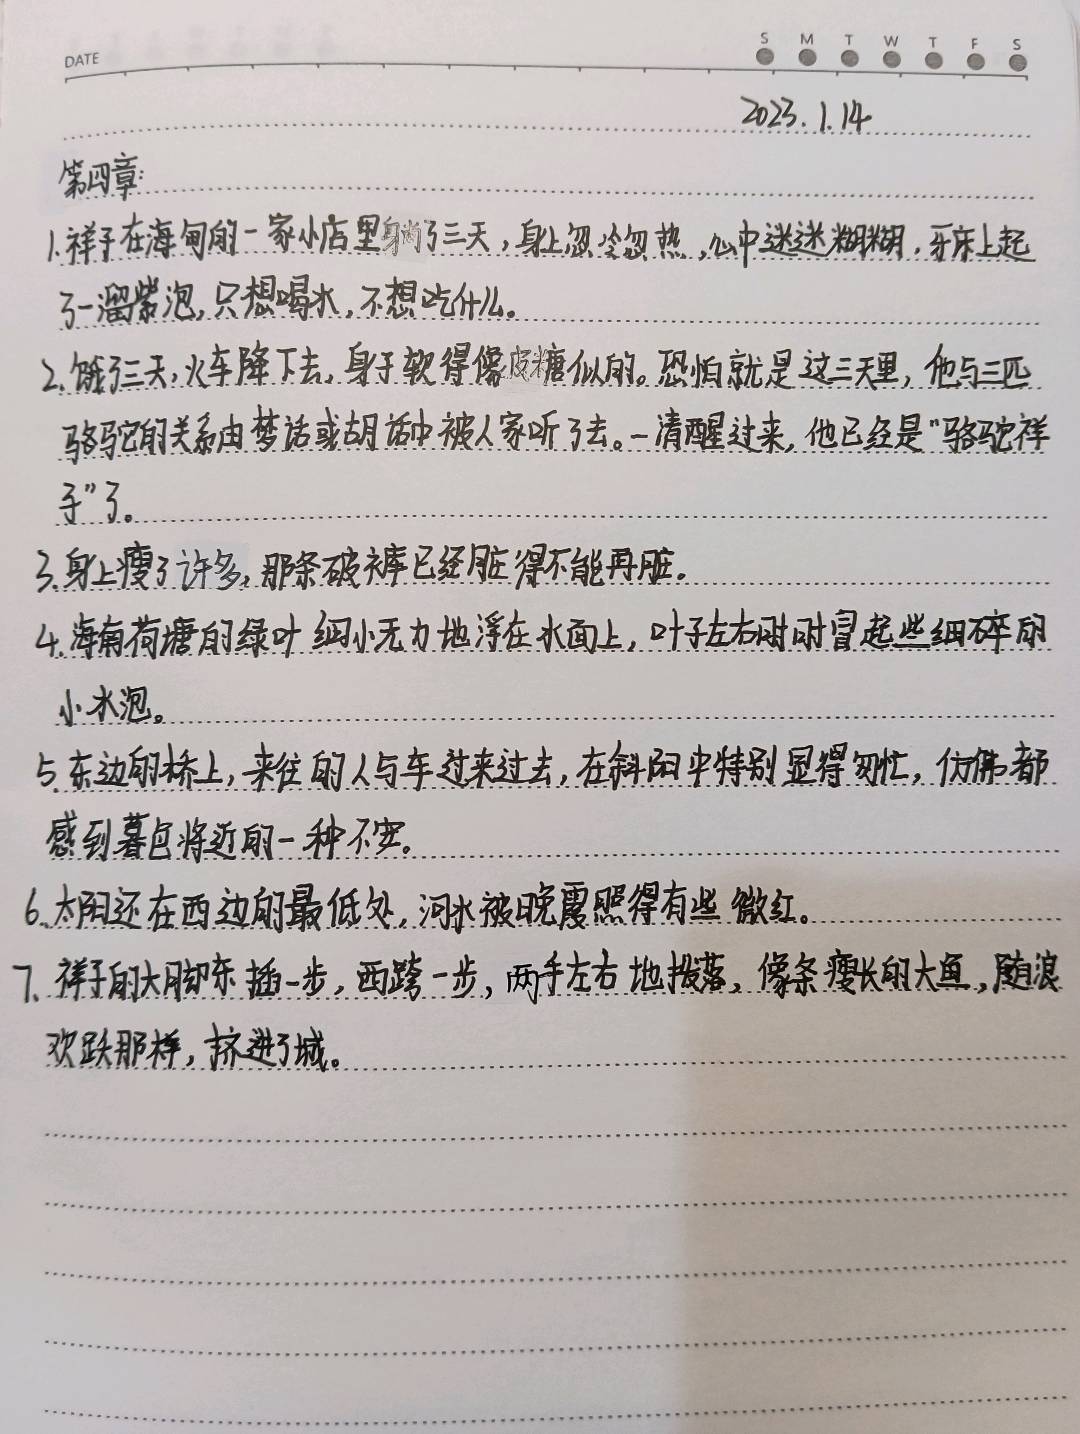 DATE
S M T W T F S
2023.1.14
第四章:
1.祥子在海甸的一家小店里躺了三天，身上忽冷忽热，心中迷迷糊糊，牙床上起
了一溜紫泡，只想喝水，不想吃什么。
2.饿了三天，火车降下去，身子软得像皮糖似的。恐怕就是这三天里，他与三匹
骆驼的关系由梦话或胡话中被人家听了去。一清醒过来，他已经是“骆驼祥
子”了。
3.身上瘦了许多，那条破裤已经脏得不能再脏。
4.海甸荷塘的绿叶细小无力地浮在水面上，叶子左右时时冒起些细碎的
小水泡。
5.东边的桥上，来往的人与车过来过去，在斜阳中特别显得匆忙，仿佛都
感到暮色将近的一种不安。
6.太阳还在西边的最低处，河水被晚霞照得有些微红。
7.祥子的大脚东插一步，西跨一步，两手左右地拨落，像条瘦长的大鱼，随浪
欢跃那样，挤进了城。